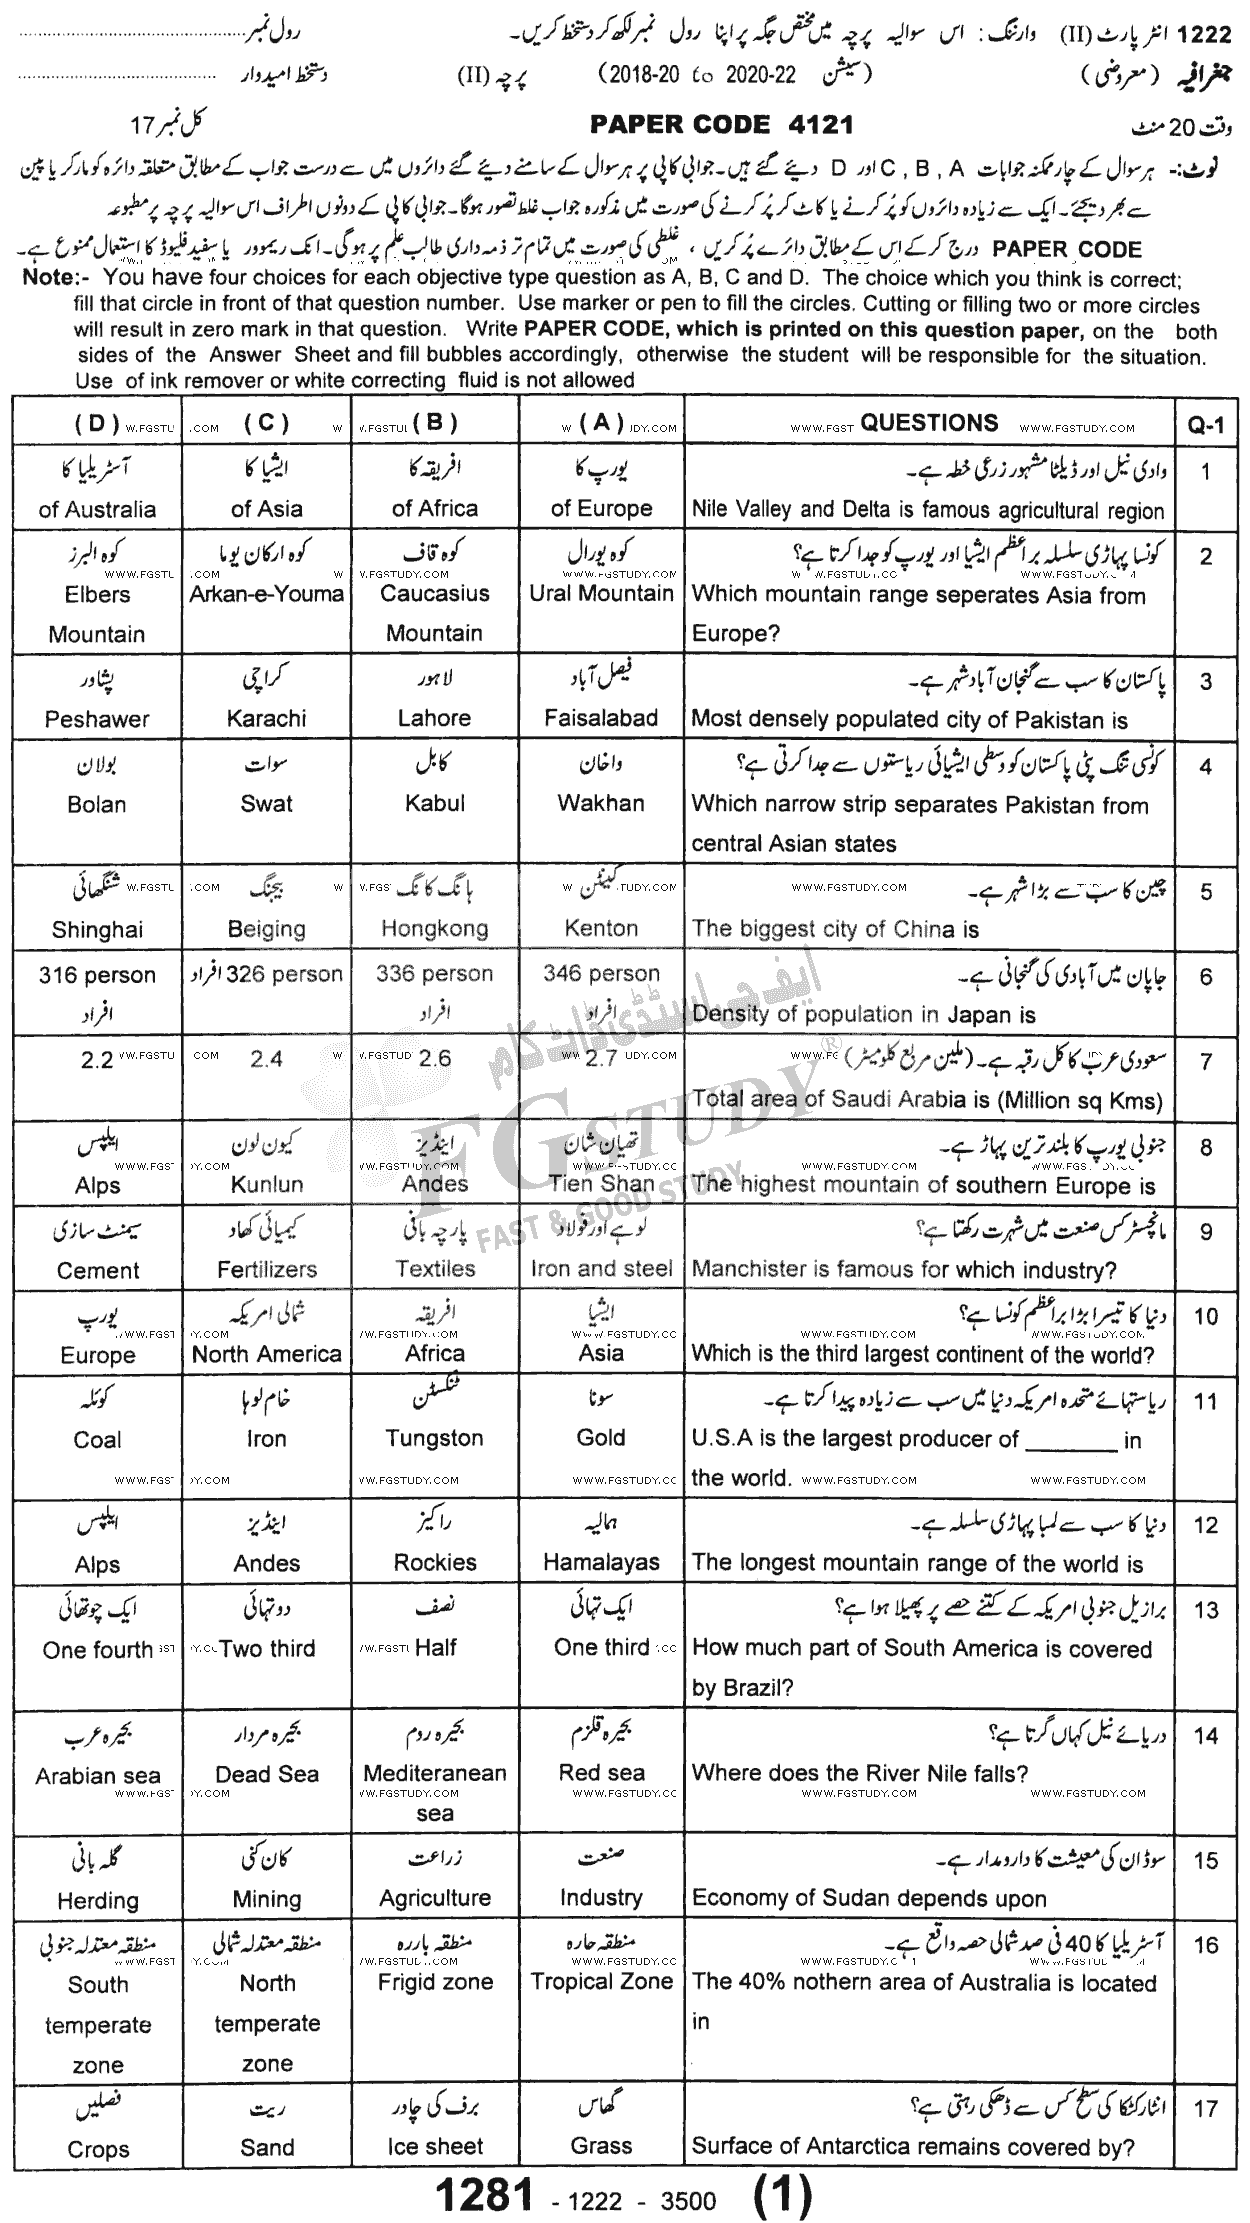 1222 انٹر پارٹ (II) وارننگ: اس سوالیہ پرچہ میں مختص جگہ پر اپنا رول نمبر لکھ کر دستخط کریں۔ رول نمبر
جغرافیہ (معروضی) (سیشن 2018-20 to 2020-22) پرچہ (II) دستخط امیدوار
وقت 20 منٹ PAPER CODE 4121 کل نمبر 17
نوٹ:- ہر سوال کے چار ممکنہ جوابات C , B , A اور D دیئے گئے ہیں۔ جوابی کاپی پر ہر سوال کے سامنے دیئے گئے دائروں میں سے درست جواب کے مطابق متعلقہ دائرہ کو مارکر یا پین
سے بھر دیجئے۔ ایک سے زیادہ دائروں کو پُر کرنے یا کاٹ کر پُر کرنے کی صورت میں مذکورہ جواب غلط تصور ہوگا۔ جوابی کاپی کے دونوں اطراف اس سوالیہ پرچہ پر مطبوعہ
PAPER CODE درج کر کے اس کے مطابق دائرے پُر کریں ، غلطی کی صورت میں تمام تر ذمہ داری طالب علم پر ہوگی۔ انک ریموور یا سفید فلیوڈ کا استعمال ممنوع ہے۔
Note:- You have four choices for each objective type question as A, B, C and D. The choice which you think is correct;
fill that circle in front of that question number. Use marker or pen to fill the circles. Cutting or filling two or more circles
will result in zero mark in that question. Write PAPER CODE, which is printed on this question paper, on the both
sides of the Answer Sheet and fill bubbles accordingly, otherwise the student will be responsible for the situation.
Use of ink remover or white correcting fluid is not allowed
(D) (C) (B) (A) QUESTIONS Q-1
آسٹریلیا کا ایشیا کا افریقہ کا یورپ کا وادی نیل اور ڈیلٹا مشہور زرعی خطہ ہے۔ 1
of Australia of Asia of Africa of Europe Nile Valley and Delta is famous agricultural region
کوہ البرز کوہ ارکان یوما کوہ قاف کوہ یورال کونسا پہاڑی سلسلہ براعظم ایشیا اور یورپ کو جدا کرتا ہے؟ 2
Elbers Arkan-e-Youma Caucasius Ural Mountain Which mountain range seperates Asia from
Mountain Mountain Europe?
پشاور کراچی لاہور فیصل آباد پاکستان کا سب سے گنجان آباد شہر ہے۔ 3
Peshawer Karachi Lahore Faisalabad Most densely populated city of Pakistan is
بولان سوات کابل واخان کونسی تنگ پٹی پاکستان کو وسطی ایشیائی ریاستوں سے جدا کرتی ہے؟ 4
Bolan Swat Kabul Wakhan Which narrow strip separates Pakistan from
central Asian states
شنگھائی بیجنگ ہانگ کانگ کینٹن چین کا سب سے بڑا شہر ہے۔ 5
Shinghai Beiging Hongkong Kenton The biggest city of China is
316 person افراد 326 person 336 person 346 person جاپان میں آبادی کی گنجانی ہے۔ 6
افراد افراد افراد Density of population in Japan is
2.2 2.4 2.6 2.7 سعودی عرب کا کل رقبہ ہے۔ (ملین مربع کلومیٹر) 7
Total area of Saudi Arabia is (Million sq Kms)
ایلپس کیون لون اینڈیز تھیان شان جنوبی یورپ کا بلند ترین پہاڑ ہے۔ 8
Alps Kunlun Andes Tien Shan The highest mountain of southern Europe is
سیمنٹ سازی کیمیائی کھاد پارچہ بافی لوہے اور فولاد مانچسٹر کس صنعت میں شہرت رکھتا ہے؟ 9
Cement Fertilizers Textiles Iron and steel Manchister is famous for which industry?
یورپ شمالی امریکہ افریقہ ایشیا دنیا کا تیسرا بڑا براعظم کونسا ہے؟ 10
Europe North America Africa Asia Which is the third largest continent of the world?
کوئلہ خام لوہا ٹنگسٹن سونا ریاستہائے متحدہ امریکہ دنیا میں سب سے زیادہ پیدا کرتا ہے۔ 11
Coal Iron Tungston Gold U.S.A is the largest producer of ________ in
the world.
ایلپس اینڈیز راکیز ہمالیہ دنیا کا سب سے لمبا پہاڑی سلسلہ ہے۔ 12
Alps Andes Rockies Hamalayas The longest mountain range of the world is
ایک چوتھائی دو تہائی نصف ایک تہائی برازیل جنوبی امریکہ کے کتنے حصے پر پھیلا ہوا ہے؟ 13
One fourth Two third Half One third How much part of South America is covered
by Brazil?
بحیرہ عرب بحیرہ مردار بحیرہ روم بحیرہ قلزم دریائے نیل کہاں گرتا ہے؟ 14
Arabian sea Dead Sea Mediteranean Red sea Where does the River Nile falls?
sea
گلہ بانی کان کنی زراعت صنعت سوڈان کی معیشت کا دارومدار ہے۔ 15
Herding Mining Agriculture Industry Economy of Sudan depends upon
منطقہ معتدلہ جنوبی منطقہ معتدلہ شمالی منطقہ باردہ منطقہ حارہ آسٹریلیا کا 40 فی صد شمالی حصہ واقع ہے۔ 16
South North Frigid zone Tropical Zone The 40% nothern area of Australia is located
temperate temperate in
zone zone
فصلیں ریت برف کی چادر گھاس انٹارکٹکا کی سطح کس سے ڈھکی رہتی ہے؟ 17
Crops Sand Ice sheet Grass Surface of Antarctica remains covered by?
1281 - 1222 - 3500 (1)
ایف جی اسٹڈی ڈاٹ کام
FG STUDY ®
FAST & GOOD STUDY
WWW.FGSTUDY.COM